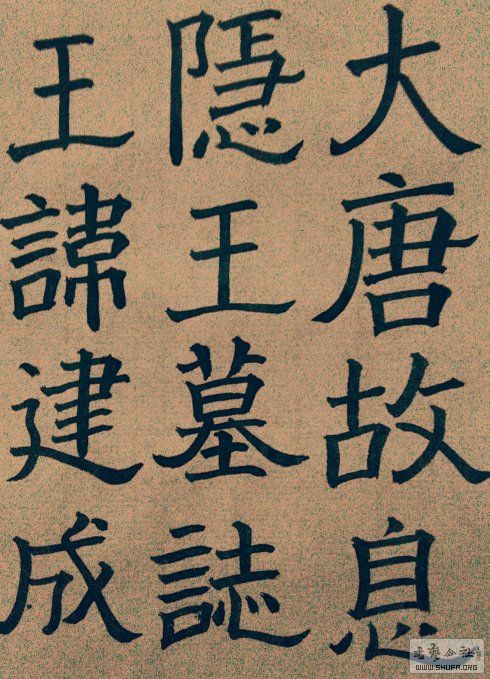 大唐故息
隱王墓誌
王諱建成
WWW.SHUFA.ORG